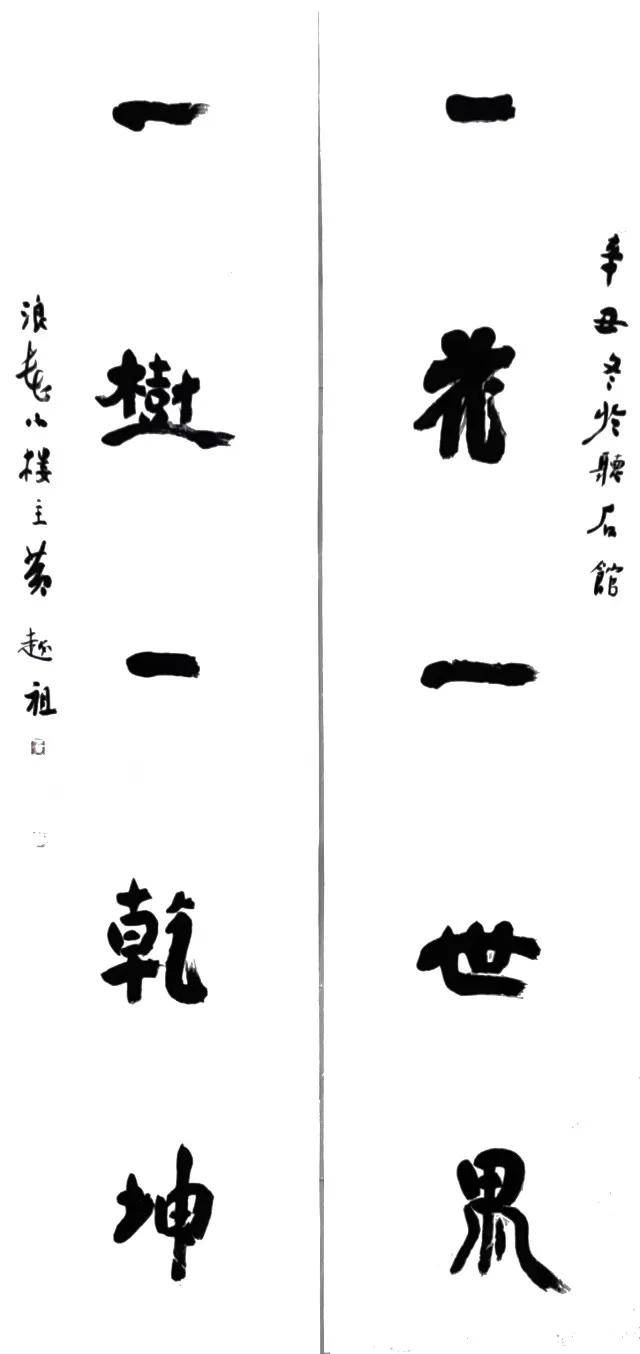 一花一世界
辛丑冬於聽石館
一樹一乾坤
浪花小樓主黄越祖